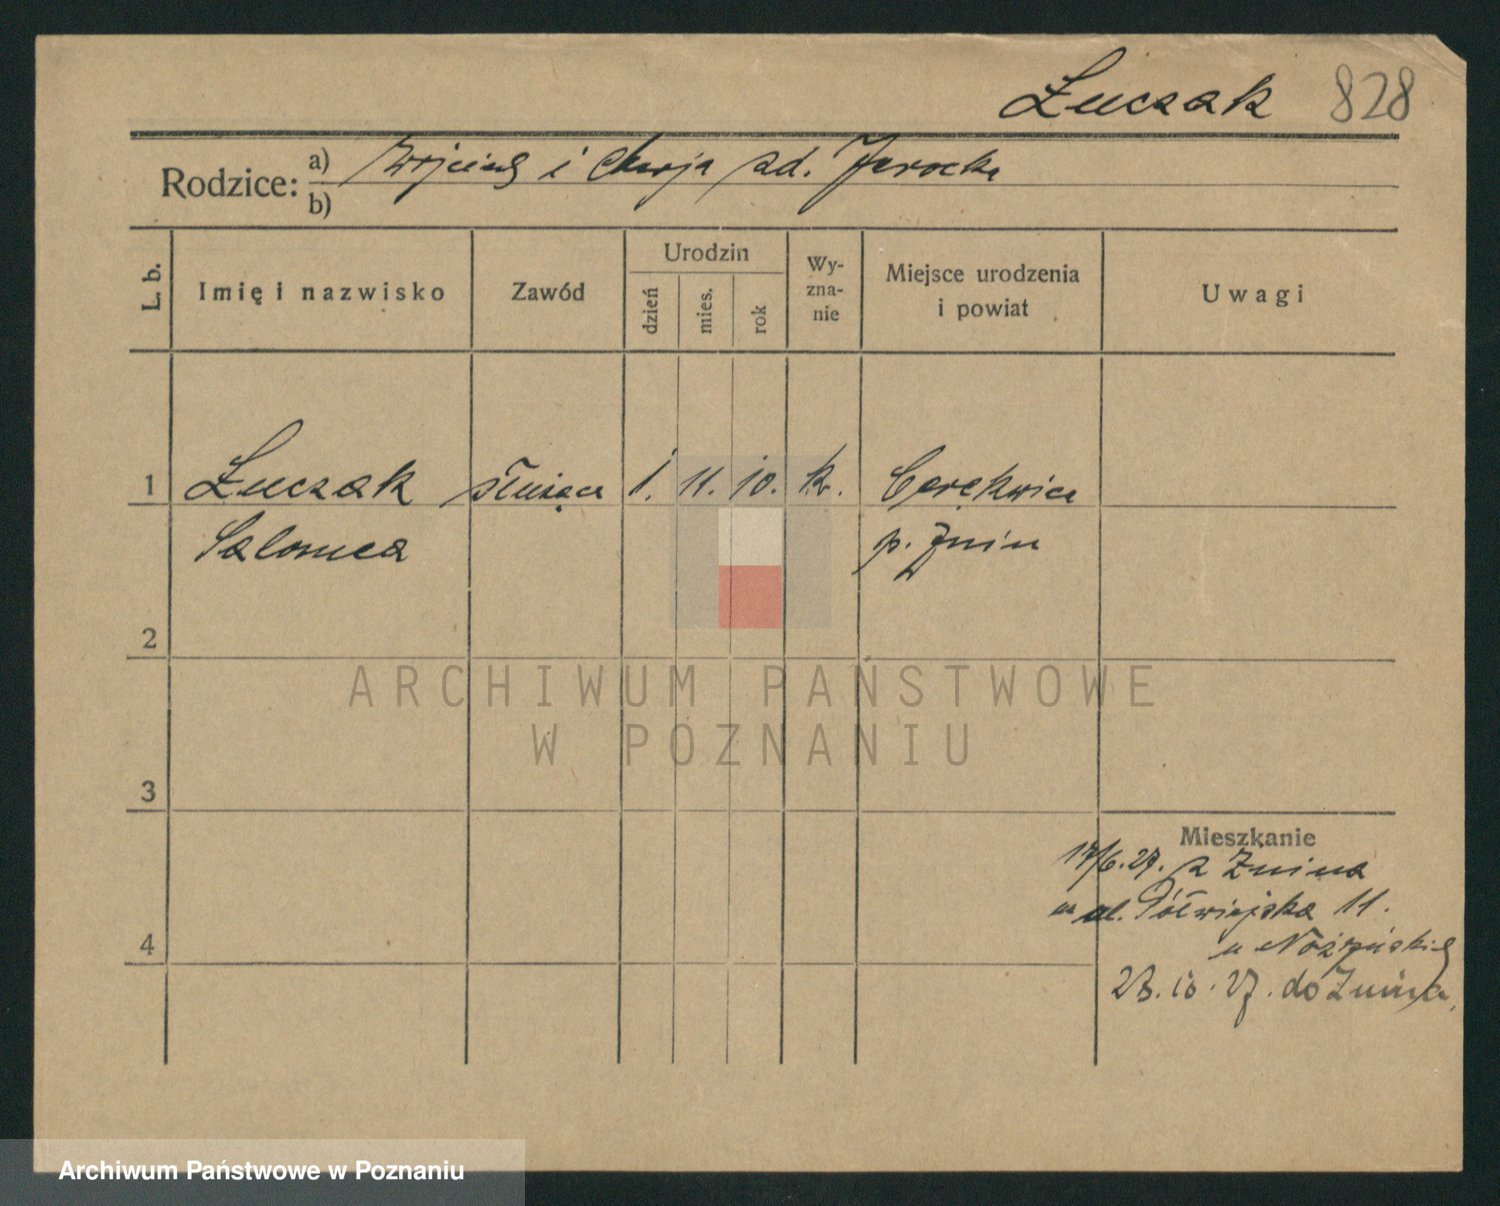 Łuczak 828
Rodzice: a) Wojciech i Marja zd. Jarocka
b)
L. b. Imię i nazwisko Zawód Urodzin dzień mies. rok Wyznanie Miejsce urodzenia i powiat Uwagi
1 Łuczak służąca 1. 11. 10. k. Cerekwica
Salomea p. Żnin
2
ARCHIWUM PAŃSTWOWE
W POZNANIU
3
Mieszkanie
17/6.27. z Żnina
ul. Półwiejska 11.
4
u
23.10.27. do Żnina
Archiwum Państwowe w Poznaniu